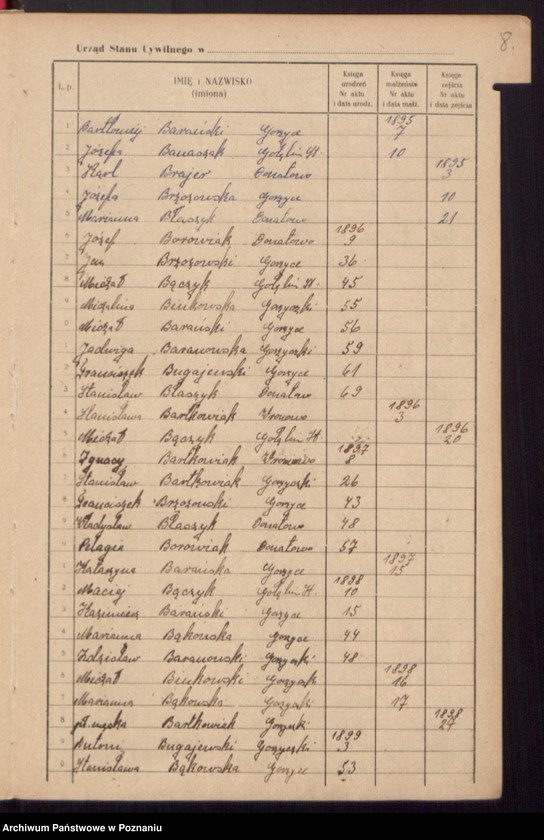 8.
Urząd Stanu Cywilnego w
L.p. IMIĘ i NAZWISKO (imiona) Księga urodzeń Nr aktu i data urodz. Księga małżeństw Nr aktu i data małż. Księga zejścia Nr aktu i data zejścia
1 Bartłomiej Barański Gorzyce 1895 7
2 Józefa Banaszak Gołębin St. 10
3 Karol Brajer Donatowo 1895 3
4 Józefa Brzozowska Gorzyce 10
5 Marianna Błaszyk Donatowo 21
6 Józef Borowiak Donatowo 1896 9
7 Jan Brzozowski Gorzyce 36
8 Michał Bączyk Gołębin St. 45
9 Michalina Bińkowska Gorzyczki 55
0 Michał Barański Gorzyce 56
1 Jadwiga Baranowska Gorzyczki 59
2 Franciszek Bugajewski Gorzyce 61
3 Stanisław Błaszyk Donatowo 69
4 Stanisława Bartkowiak 1896 3
5 Michał Bączyk Gołębin St. 1896 20
6 Ignacy Bartkowiak 1897 8
7 Stanisław Bartkowiak Gorzyczki 26
8 Franciszek Brzozowski Gorzyce 43
9 Władysław Błaszyk Donatowo 48
0 Pelagia Borowiak Donatowo 57
1 Katarzyna Barańska Gorzyce 1897 15
2 Maciej Bączyk Gołębin St. 1898 10
3 Kazimierz Barański Gorzyce 15
4 Marianna Bąkowska Gorzyce 44
5 Zdzisław Baranowski Gorzyczki 48
6 Michał Bińkowski 1898 16
7 Marianna Bąkowska Gorzyczki 17
8 Bartkowiak Gorzyczki 1898 27
9 Antoni Bugajewski Gorzyczki 1899 3
0 Stanisława Bąkowska Gorzyce 53
Archiwum Państwowe w Poznaniu